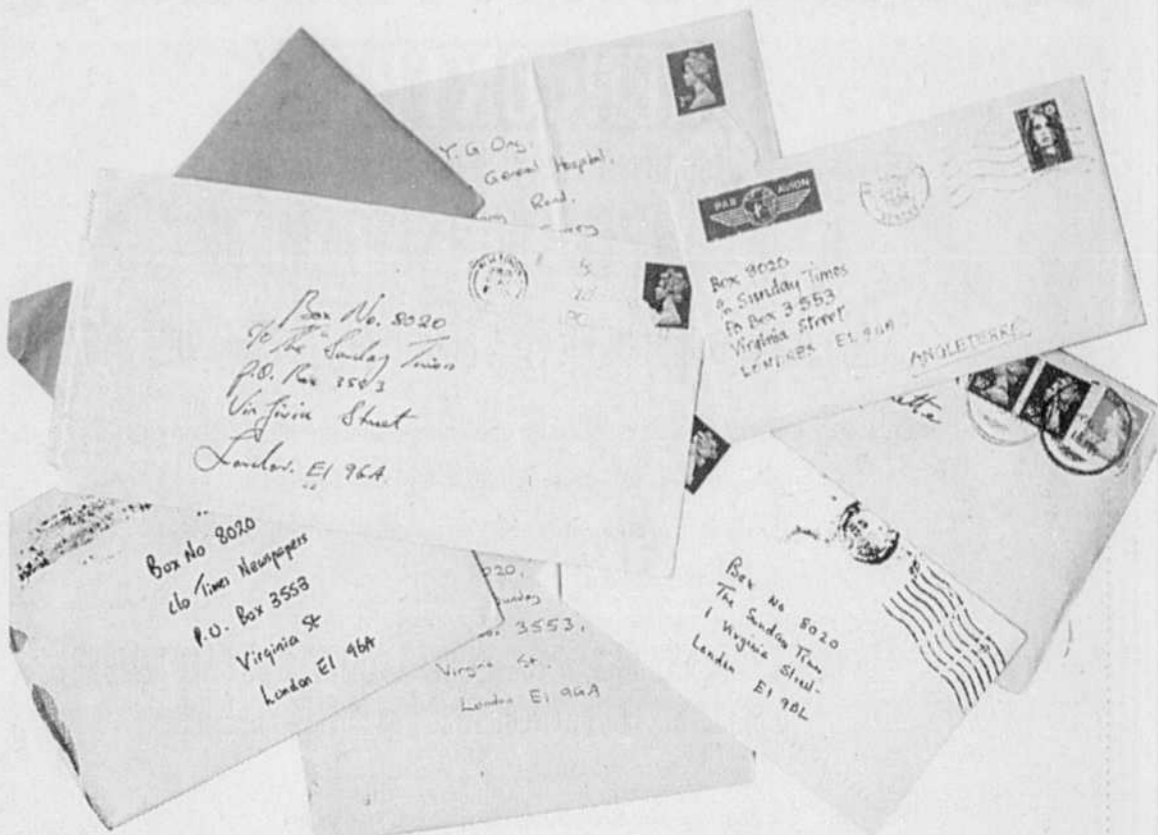 Y. G. Ong.
General Hospital.
Road.
PAR AVION
Box 8020
c/o Sunday Times
Po Box 3553
Virginia Street
LONDRES E1 9GA
ANGLETERRE
Box No. 8020
c/o The Sunday Times
P.O. Box 3553
Virginia Street
London. E1 9GA.
Box No 8020
c/o Times Newspapers
P.O. Box 3553
Virginia St
London E1 9GA
020,
Sunday
3553,
St.
London E1 9GA
Box No 8020
The Sunday Times
1 Virginia Street.
London E1 9BL